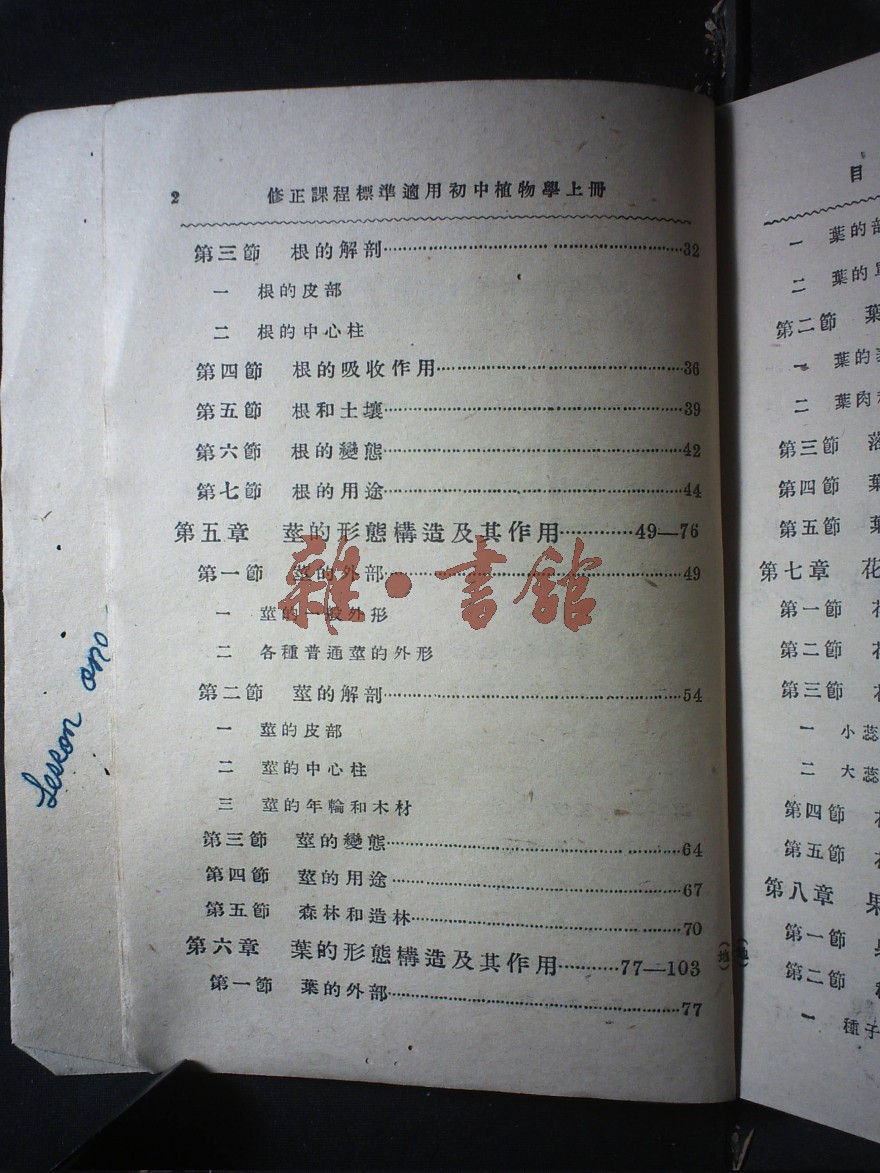 2 修正課程標準適用初中植物學上冊
第三節 根的解剖……32
一 根的皮部
二 根的中心柱
第四節 根的吸收作用……36
第五節 根和土壤……39
第六節 根的變態……42
第七節 根的用途……44
第五章 莖的形態構造及其作用……49—76
第一節 莖的外部……49
一 莖的一般外形
二 各種普通莖的外形
第二節 莖的解剖……54
一 莖的皮部
二 莖的中心柱
三 莖的年輪和木材
第三節 莖的變態……64
第四節 莖的用途……67
第五節 森林和造林……70
第六章 葉的形態構造及其作用……77—103
第一節 葉的外部……77
雜·書館
Lesson one
(地)
目
一 葉的
二 葉的
第二節 葉
一 葉的
二 葉肉
第三節 落
第四節 葉
第五節 葉
第七章 花
第一節
第二節
第三節
一 小蕊
二 大蕊
第四節
第五節
第八章 果
第一節
第二節
一 種子